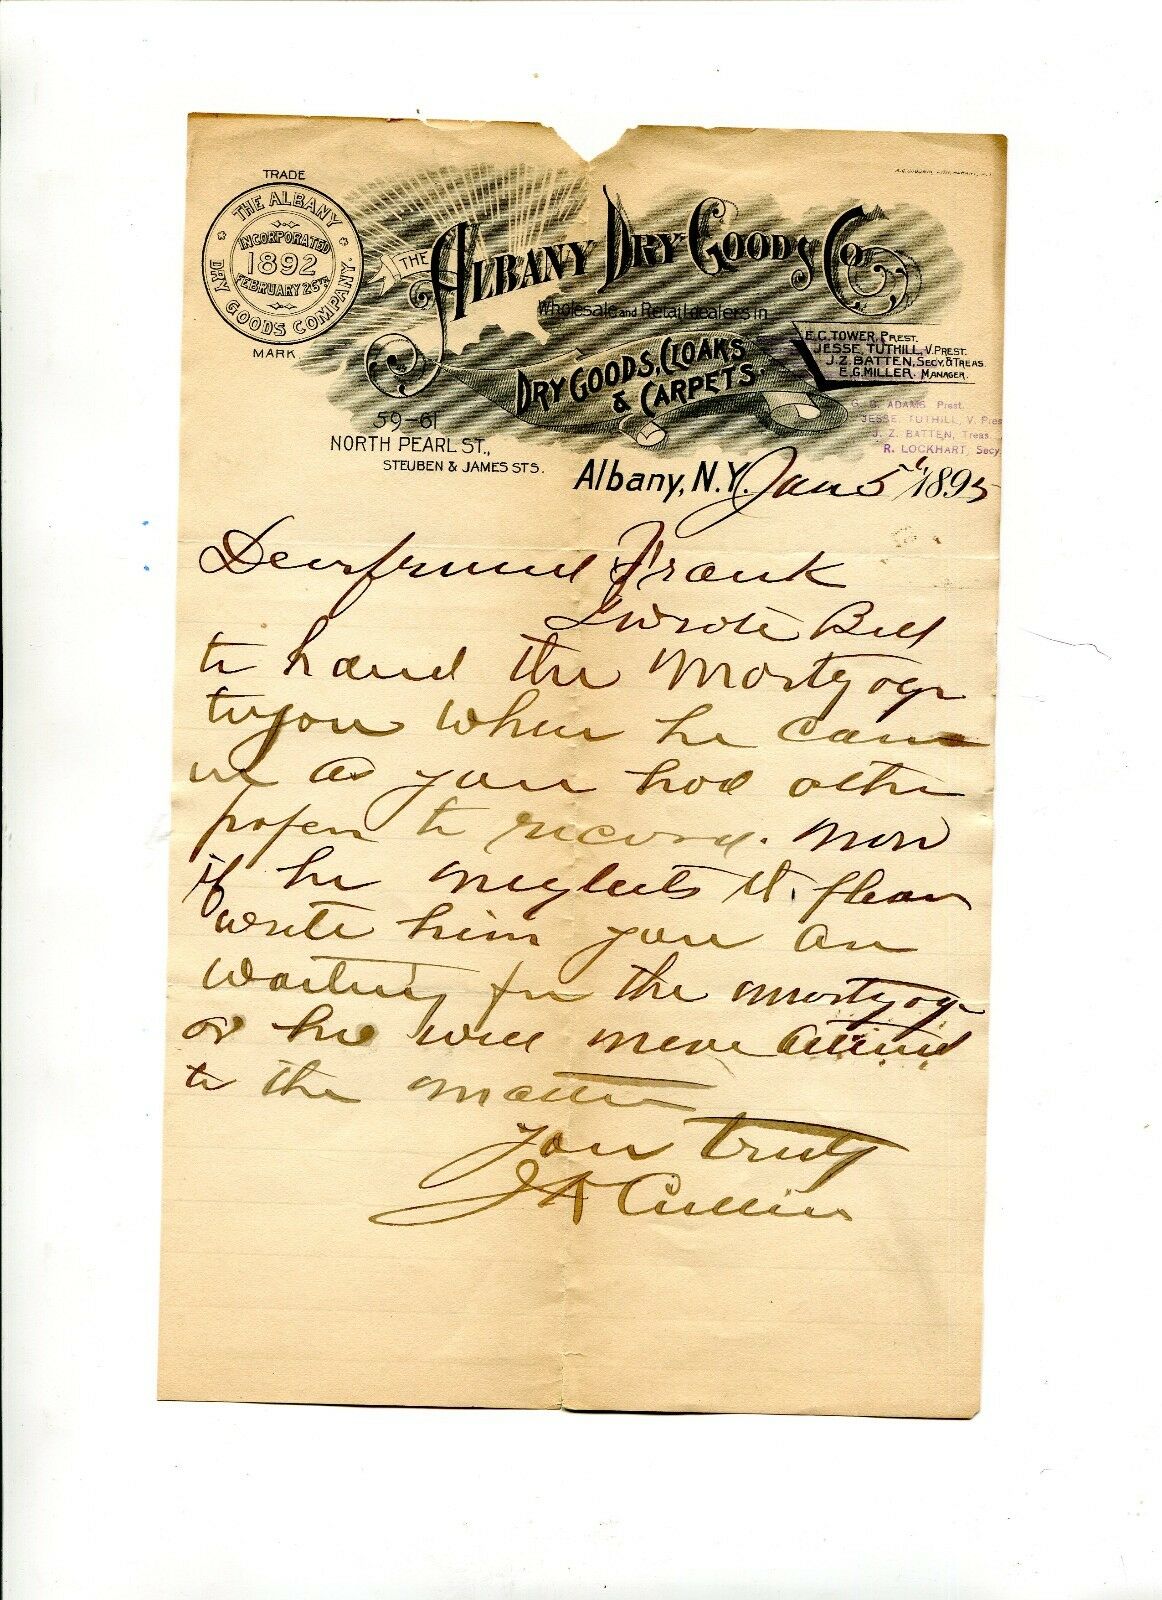 TRADE
THE ALBANY DRY GOODS COMPANY.
INCORPORATED
1892
FEBRUARY 26TH
MARK
THE ALBANY DRY GOODS CO.
Wholesale and Retail dealers in
DRY GOODS, CLOAKS
& CARPETS.
E.C. TOWER, PREST.
JESSE TUTHILL, V. PREST.
J. Z. BATTEN, SECY. & TREAS.
E.G. MILLER. MANAGER.
ADAMS Prest.
JESSE TUTHILL, V. Pres
J. Z. BATTEN, Treas
R. LOCKHART, Secy.
59-61
NORTH PEARL ST.,
STEUBEN & JAMES STS.
Albany, N.Y. Jan 5 1895
Dear friend Frank
I wrote Bill
to hand the Mortgage
to you when he came
in as you had other
papers to record. Now
if he neglects it. Please
write him you are
waiting for the mortgage
or he will never attend
to the matter
Your Truly
J A Cullin